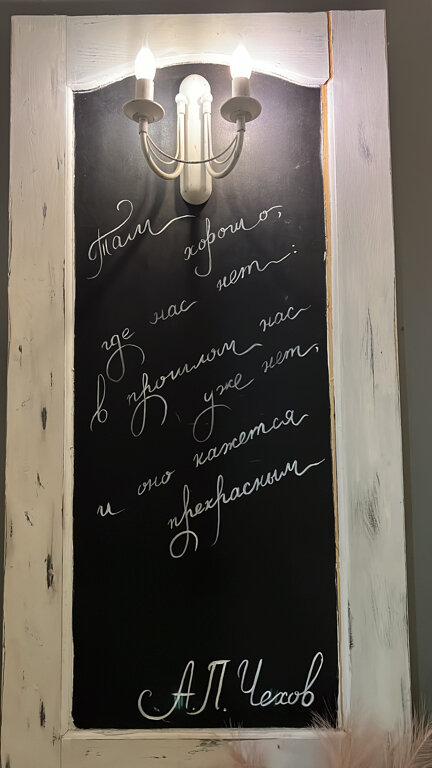 Там хорошо,
где нас нет:
в прошлом нас
уже нет,
и оно кажется
прекрасным
А.П. Чехов